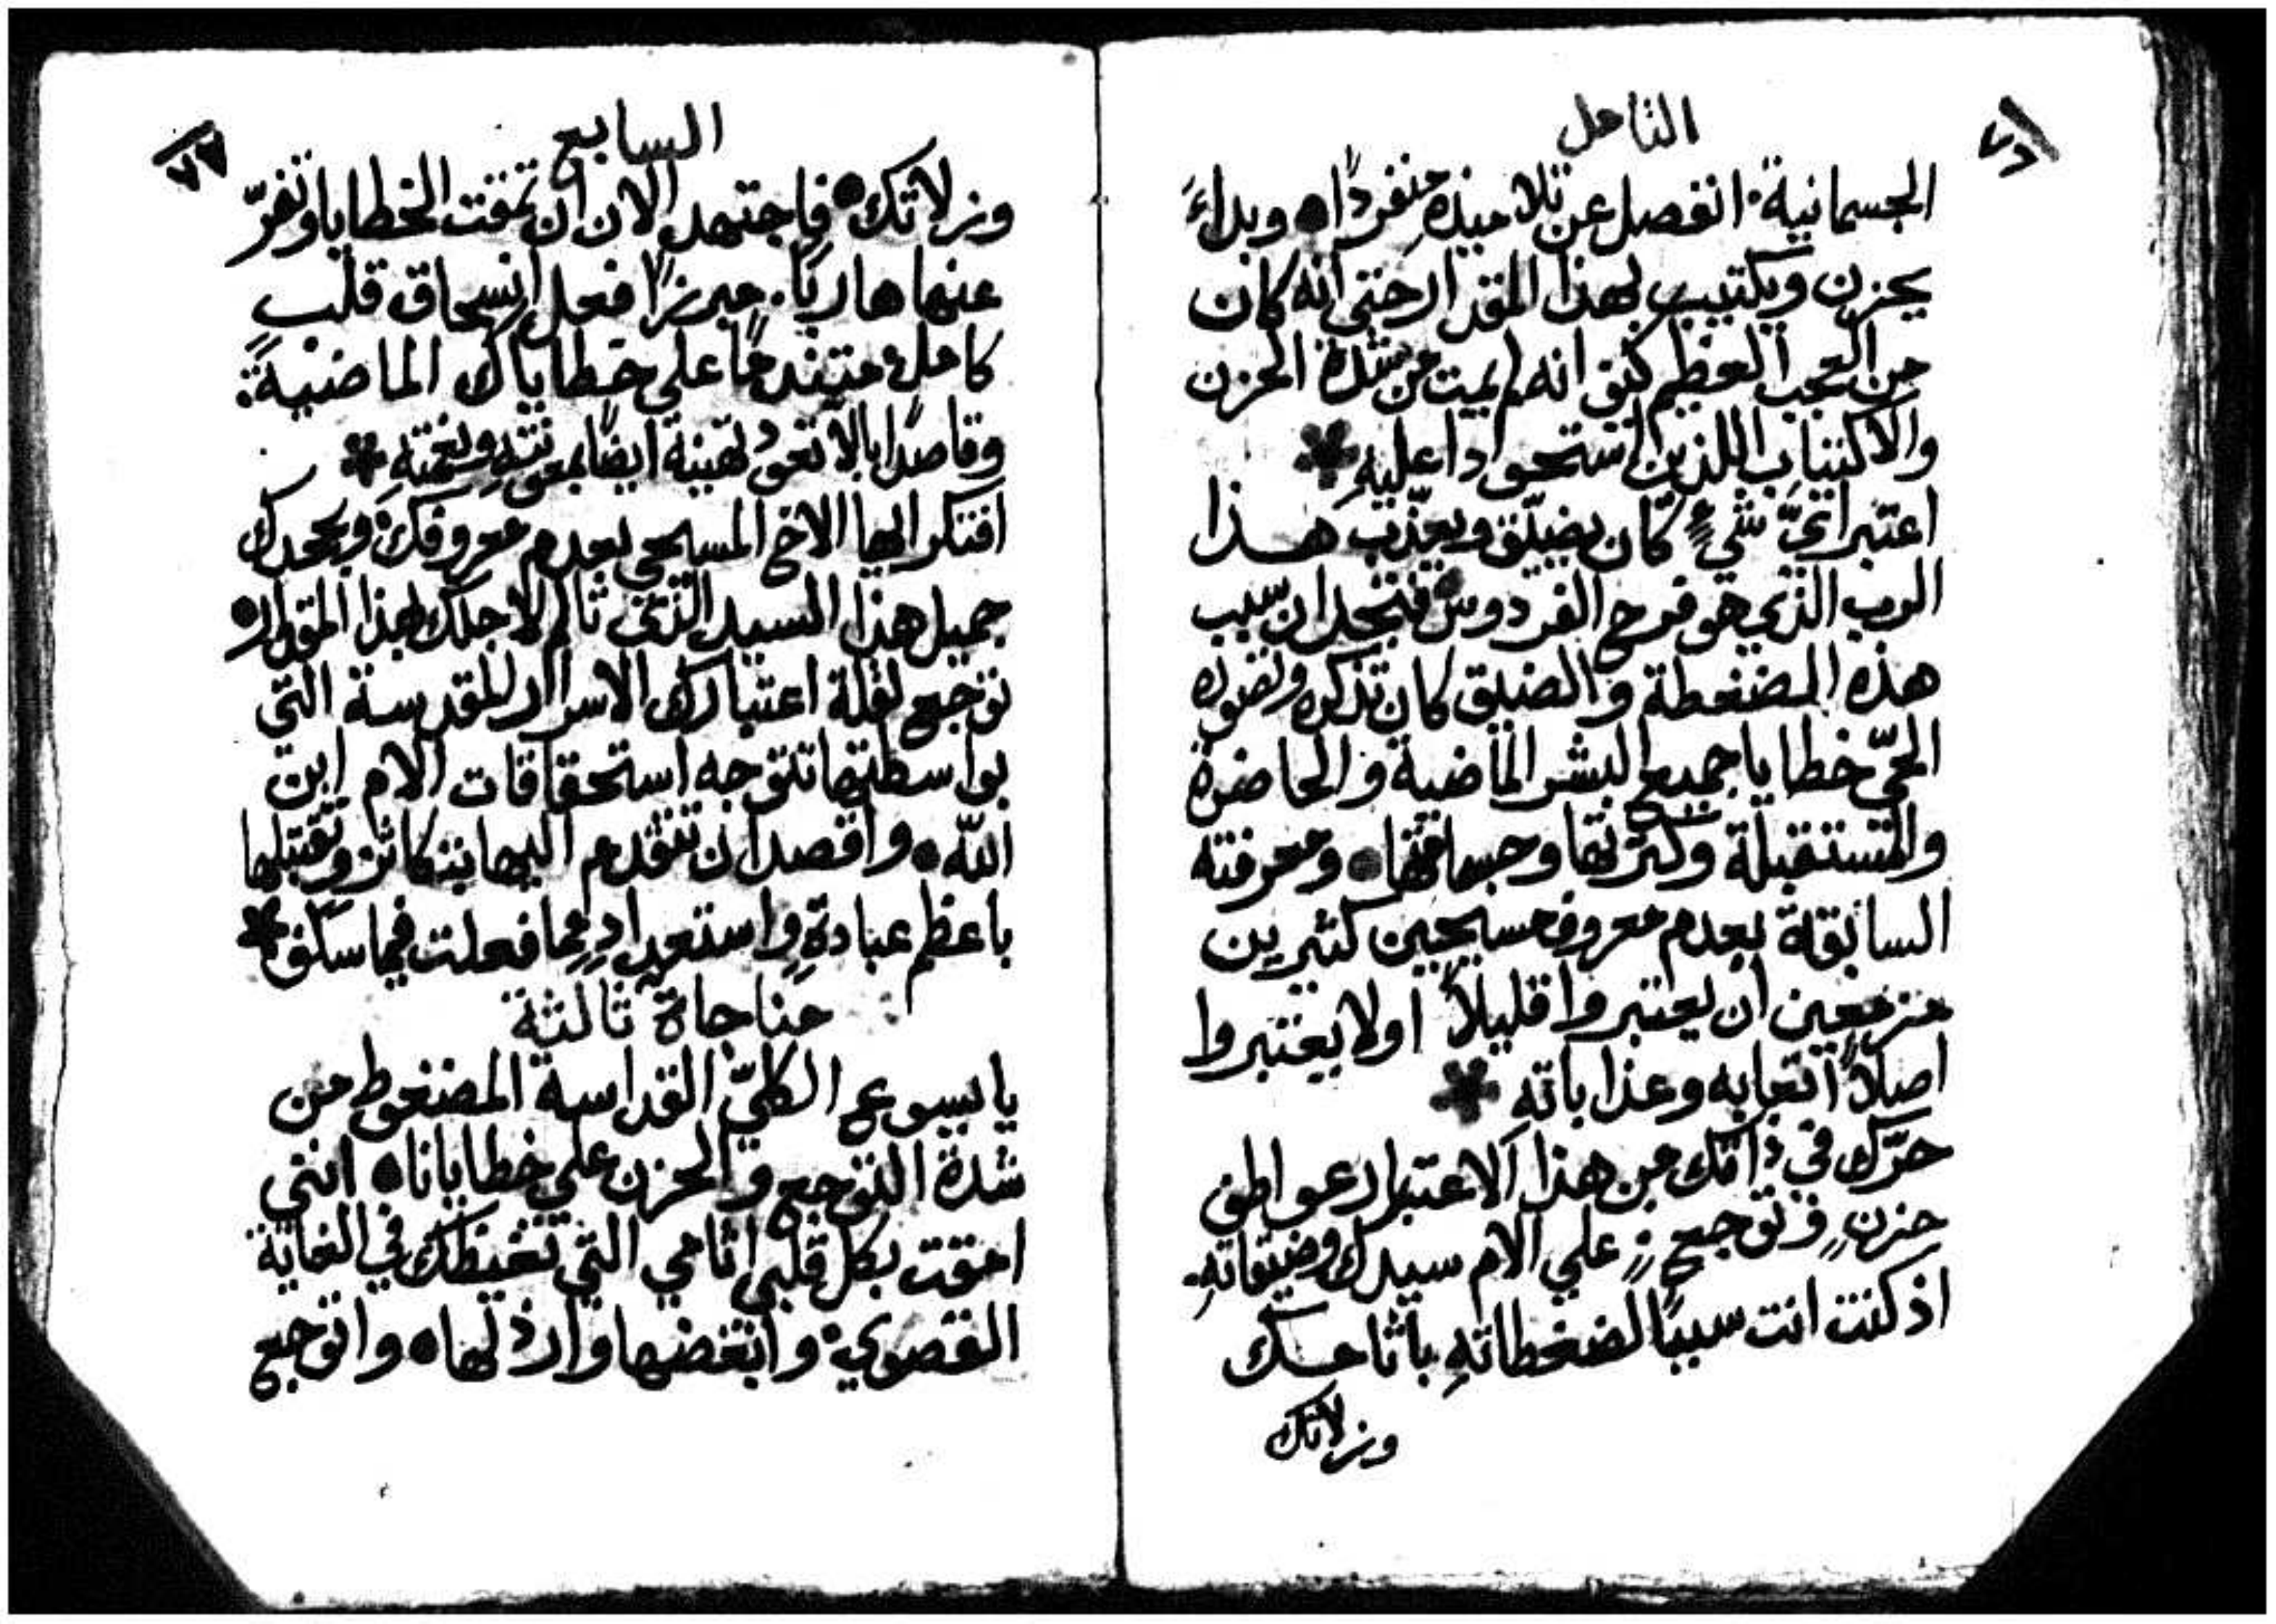 التامل
٧٦
الجسمانية. انفصل عن تلاميذه منفردًا• وبداءَ
يحزن ويكتيب بهذا المقدار حتي انه كان
من العجب العظيم كيف انه لم يمت من شدة الحزن
والاكتئاب اللذين استحوادا عليهِ *
اعتبر ايّ شيءٍ كان يضيّق ويعذّب هذا
الرب الذي هو فرح الفردوس• فتجد ان سبب
هذه المضغطة والضيق كان تذكره وتصوره
الحيّ خطايا جميع البشر الماضية والحاضرة
والمستقبلة وكثرتها وجسامتها• ومعرفته
السابقة بعدم معروف مسيحيين كثيرين
مزمعين ان يعتبروا قليلاً او لا يعتبروا
اصلاً اتعابه وعذاباته *
حرّك في ذاتك من هذا الاعتبار عواطف
حزنٍ وتوجعٍ علي الام سيدك وضيقاتهِ.
اذ كنت انت سببًا لضغطاتهِ باثامك
وزلاتك
السابع
٧٧
وزلاتك• فاجتهد الان ان تمقت الخطايا وتفرّ
عنها هاربًا. مبرزًا فعل انسحاق قلب
كاملٍ• متندمًا علي خطاياك الماضية:
وقاصدًا بالا تعود تهينهُ ايضًا بمعونتهِ ونعمتهِ *
افتكر ايها الاخ المسيحي بعدم معروفك• وبجحدك
جميل هذا السيد الذي تالم لاجلك بهذا المقدار•
توجع لقلة اعتبارك الاسرار المقدسة التي
بواسطتها تتوجه استحقاقات الام ابن
اللّه• واقصد ان تتقدم اليها بتكاثر وتقبتلها
باعظم عبادةٍ واستعدادٍ مما فعلت فيما سلف *
مناجاة ثالثة
يا يسوع الكليّ القداسة المضغوط من
شدة التوجع والحزن علي خطايانا• انني
امقت بكل قلبي اثامي التي تغيظك في الغاية
القصوي• وابغضها وارذلها• واتوجع